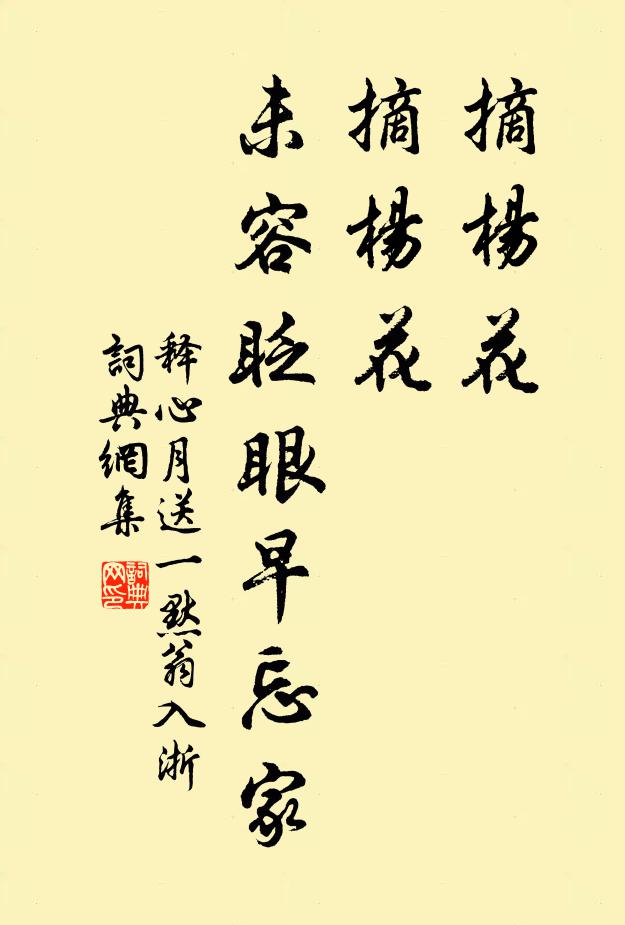 摘楊花
摘楊花
未容眨眼早忘家
释心月送一默翁入浙
詞典網集
詞典网印